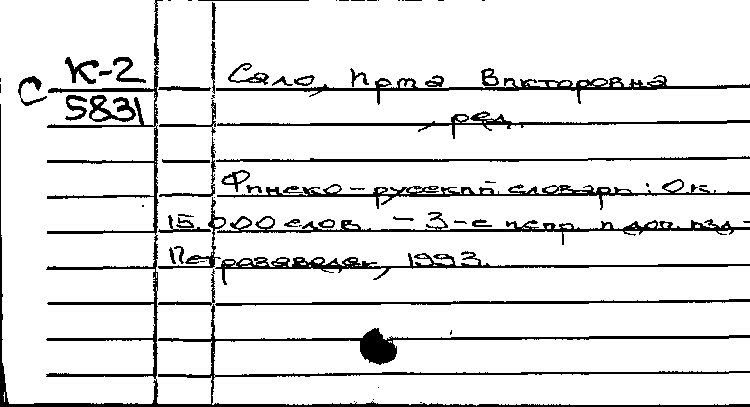 С К-2
5831
Сало, Ирма Викторовна
, ред.
Финско-русский словарь: Ок.
15.000 слов. - 3-е испр. и доп. изд -
Петрозаводск, 1993.